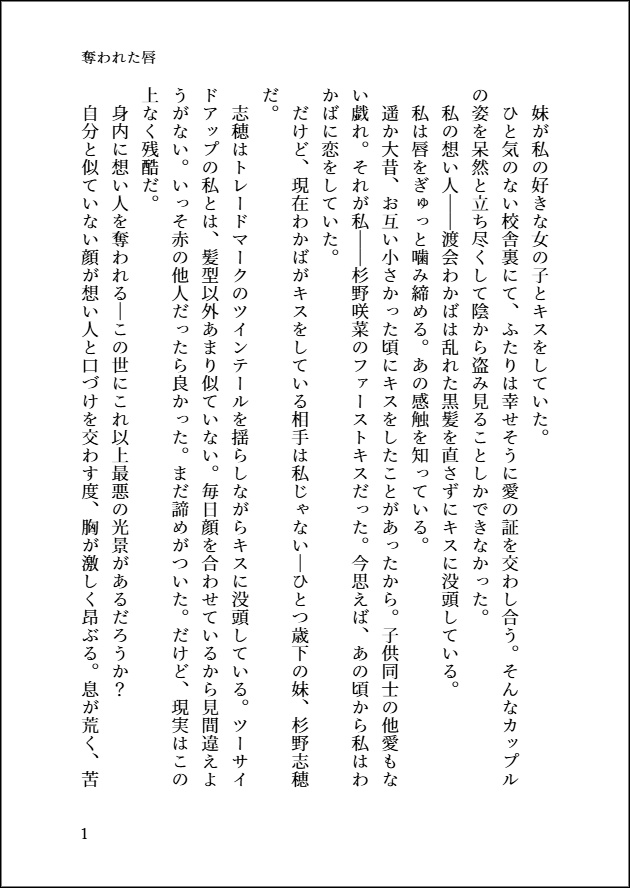 奪われた唇
　妹が私の好きな女の子とキスをしていた。
　ひと気のない校舎裏にて、ふたりは幸せそうに愛の証を交わし合う。そんなカップル
の姿を呆然と立ち尽くして陰から盗み見ることしかできなかった。
　私の想い人――渡会わかばは乱れた黒髪を直さずにキスに没頭している。
　私は唇をぎゅっと噛み締める。あの感触を知っている。
　遥か大昔、お互い小さかった頃にキスをしたことがあったから。子供同士の他愛もな
い戯れ。それが私――杉野咲菜のファーストキスだった。今思えば、あの頃から私はわ
かばに恋をしていた。
　だけど、現在わかばがキスをしている相手は私じゃない―ひとつ歳下の妹、杉野志穂
だ。
　志穂はトレードマークのツインテールを揺らしながらキスに没頭している。ツーサイ
ドアップの私とは、髪型以外あまり似ていない。毎日顔を合わせているから見間違えよ
うがない。いっそ赤の他人だったら良かった。まだ諦めがついた。だけど、現実はこの
上なく残酷だ。
　身内に想い人を奪われる―この世にこれ以上最悪の光景があるだろうか？
　自分と似ていない顔が想い人と口づけを交わす度、胸が激しく昂ぶる。息が荒く、苦
1